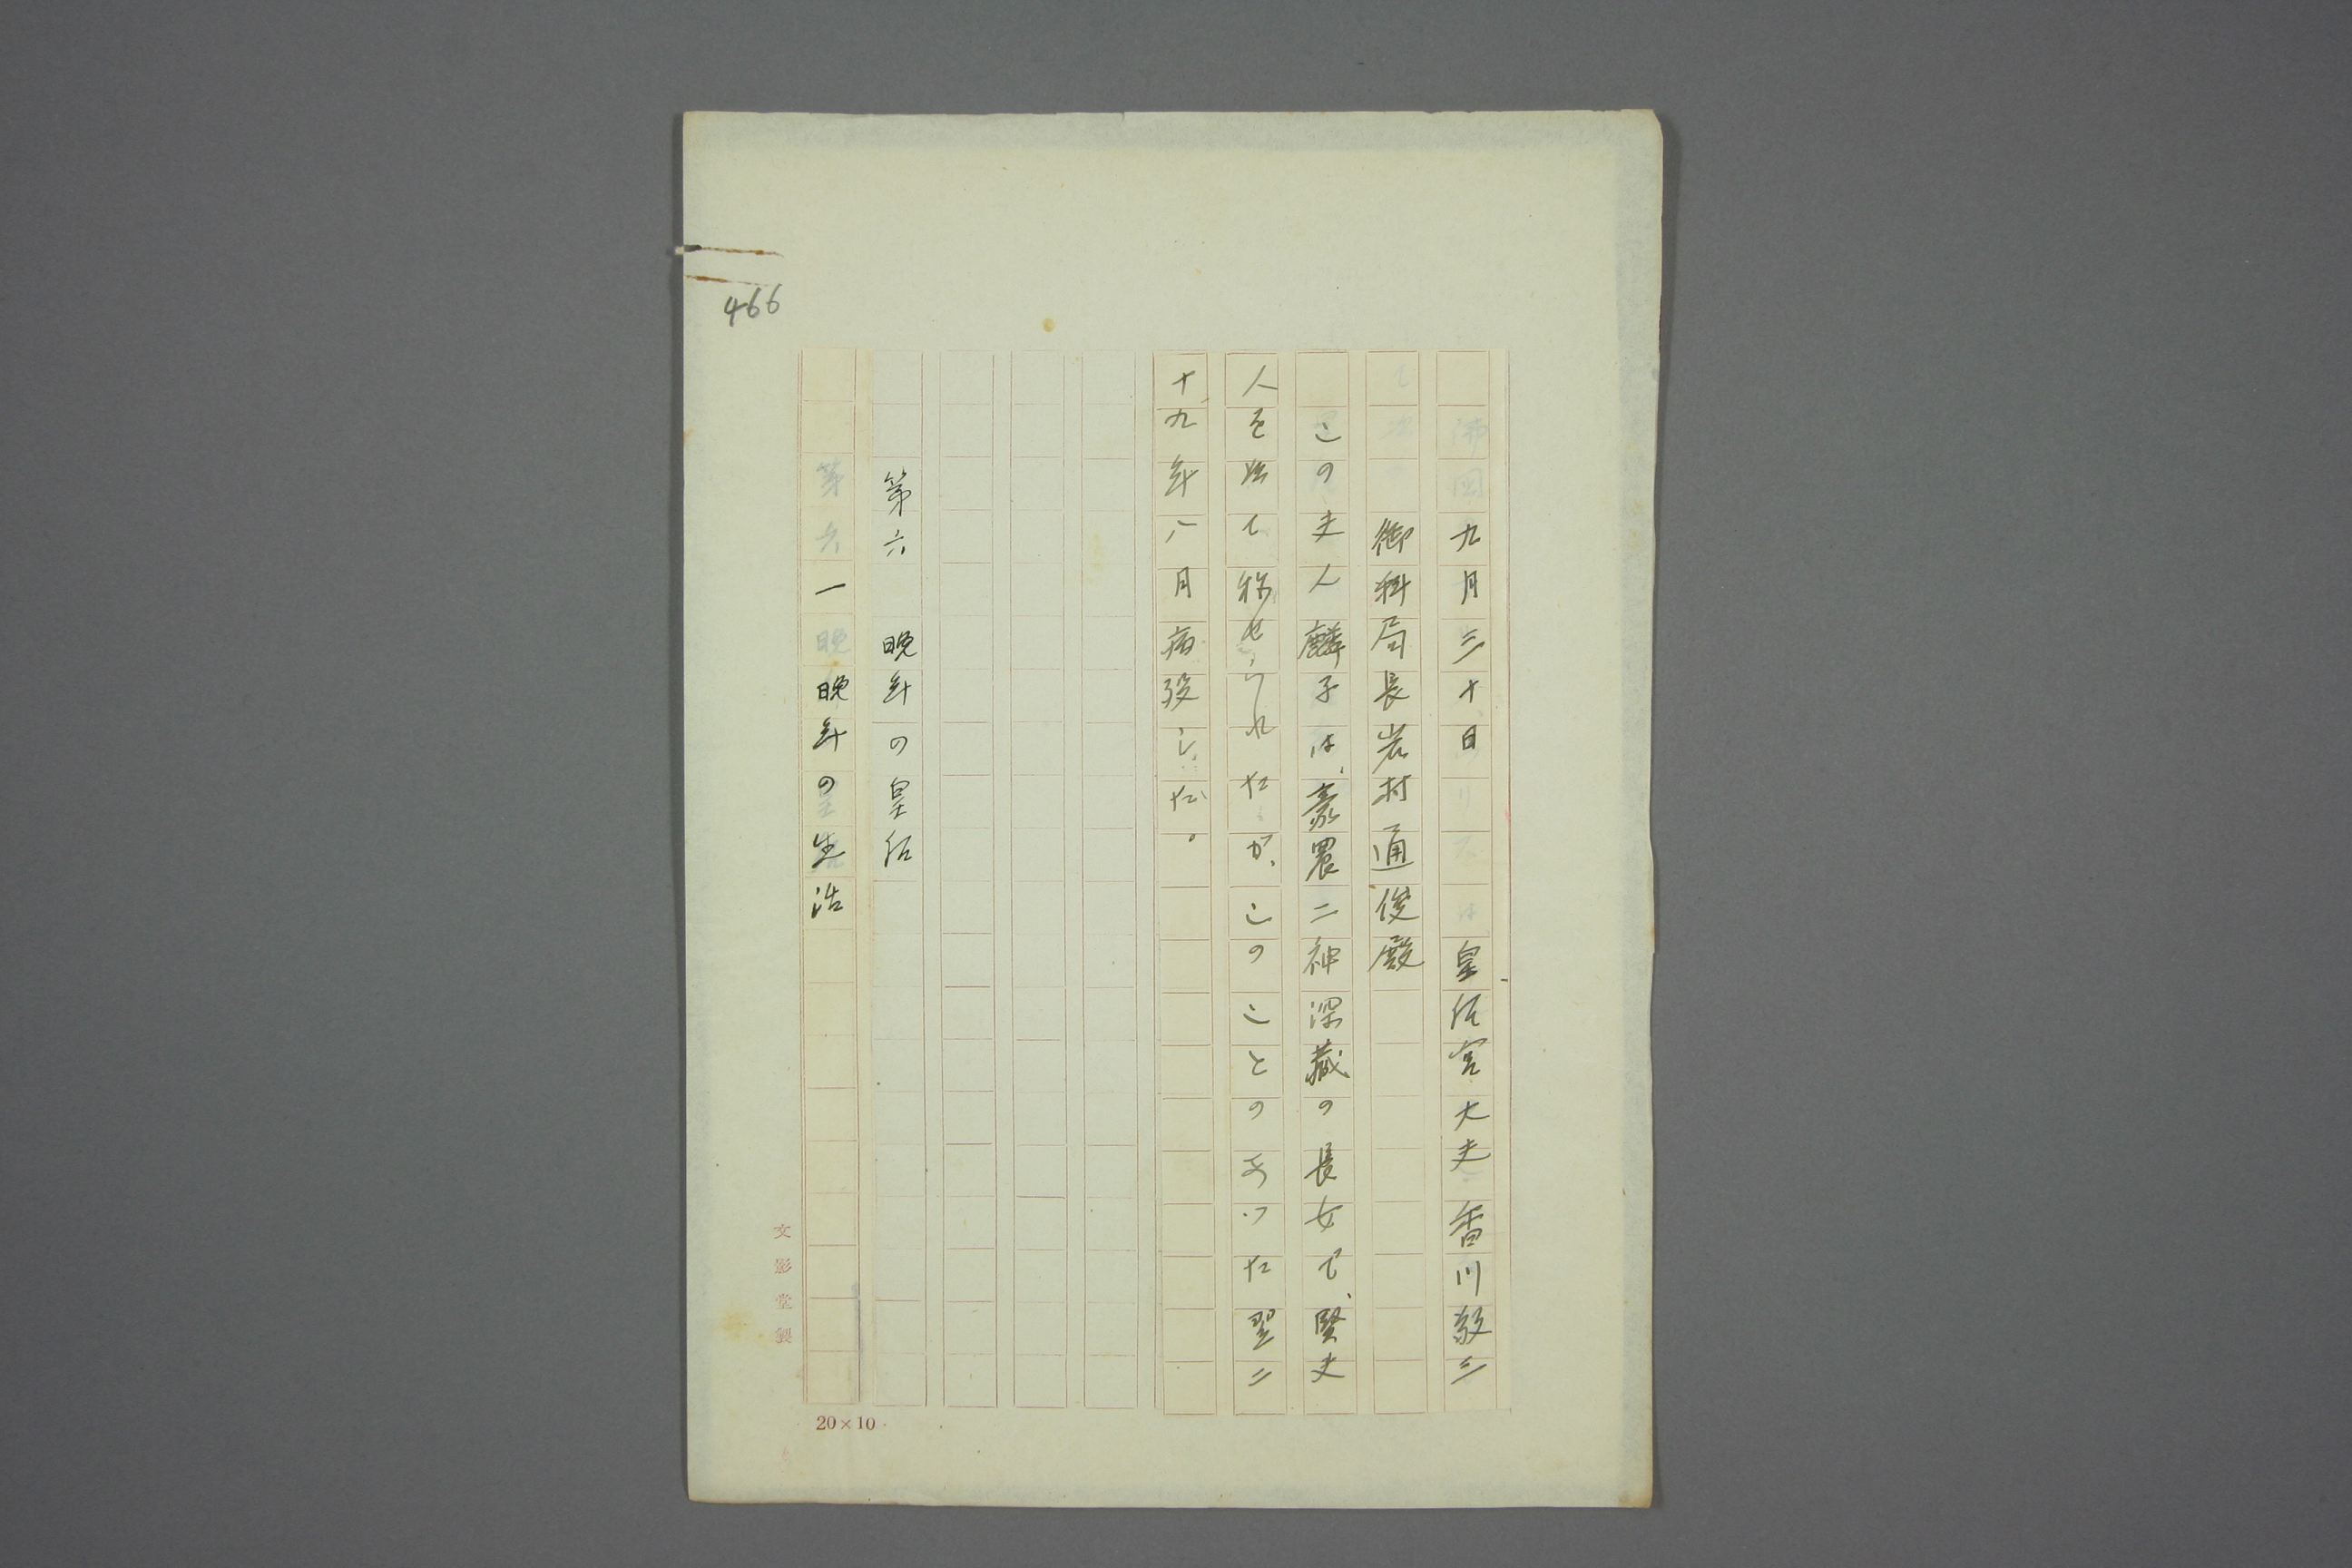 466
九月三十日　皇后宮大夫香川敬三
御料局長岩村通俊殿
この夫人麟子は、豪農二神深蔵の長女で、賢夫
人を以て称せられたが、このことのあった翌二
十九年八月病歿した。
第六　晩年の皇后
一　晩年の生活
文影堂製
20×10